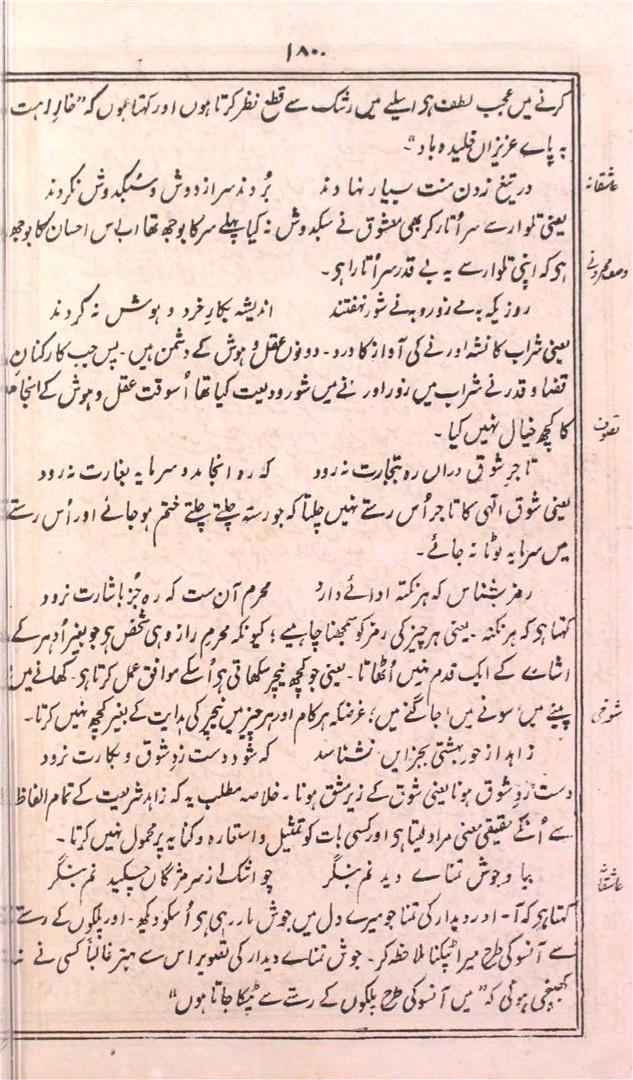 ۱۸۰
کرنے میں عجب لطف ہو اسلیے میں رشک سے قطع نظر کرتا ہوں اور کہتا ہوں کہ ”خار راہت
بہ پاے عزیزاں خلیدہ باد“۔
عاشقانہ
در تیغ زدن منت بسیار نہادند بُردند سر از دوش و سبکدوش نکردند
یعنی تلوار سے سر اُتار کر بھی معشوق نے سبکدوش نہ کیا پہلے سر کا بوجھ تھا اب اس احسان کا بوجھ
ہو کہ اپنی تلوار سے یہ بے قدر سر اُتارا ہو۔
روزیکہ بہ مے زور و بہ نے شور نہفتند اندیشہ بکارِ خرد و ہوش نہ کردند
یعنی شراب کا نشہ اور نے کی آواز کا درد۔ دونوں عقل و ہوش کے دشمن ہیں۔ پس جب کارکنانِ
قضا و قدر نے شراب میں زور اور نے میں شور ودیعت کیا تھا اُسوقت عقل و ہوش کے انجام
کا کچھ خیال نہیں کیا۔
تصوف
تاجرِ شوق دراں رہ بتجارت نہ رود کہ رہ انجامد و سرمایہ بغارت نہ رود
یعنی شوق الٰہی کا تاجر اُس رستے نہیں چلتا کہ جو رستہ چلتے چلتے ختم ہو جائے اور اُس رستے
میں سرمایہ لوٹا نہ جائے۔
رمز بشناس کہ ہر نکتہ ادائے دارد محرم آن ست کہ رہ جُز باشارت نرود
کہتا ہو کہ ہر نکتہ۔ یعنی ہر چیز کی رمز کو سمجھنا چاہیے؛ کیونکہ محرمِ راز وہی شخص ہو جو بغیر اُدہر کے
اشارے کے ایک قدم نہیں اُٹھاتا۔ یعنی جو کچھ نیچر سکھاتی ہو اُسکے موافق عمل کرتا ہو۔ کھانے میں
شوخی
پینے میں سونے میں جاگنے میں؛ غرضکہ ہر کام اور ہر چیز میں نیچر کی ہدایت کے بغیر کچھ نہیں کرتا۔
زاہد از حور بہشتی بجز ایں نشناسد کہ شود دست زدِ شوق و بکارت نرود
دست زدِ شوق ہونا یعنی شوق کے زیر مشق ہونا۔ خلاصہ مطلب یہ کہ زاہد شریعت کے تمام الفاظ
سے اُنکے حقیقی معنی مراد لیتا ہو اور کسی بات کو تمثیل و استعارہ و کنایہ پر محمول نہیں کرتا۔
عاشقانہ
بیا و جوش تمناے دیدنم بنگر چو اشک از سر مژگاں چکیدنم بنگر
کہتا ہو کہ آ۔ اور دیدار کی تمنا جو میرے دل میں جوش مار رہی ہو اُسکو دیکھ۔ اور پلکوں کے رستے
سے آنسو کی طرح میرا ٹپکنا ملاحظہ کر۔ جوش تمناے دیدار کی تصویر اس سے بہتر غالباً کسی نے نہ
کھینچی ہوئی کہ ”میں آنسو کی طرح پلکوں کے رستے سے ٹپکا جاتا ہوں“